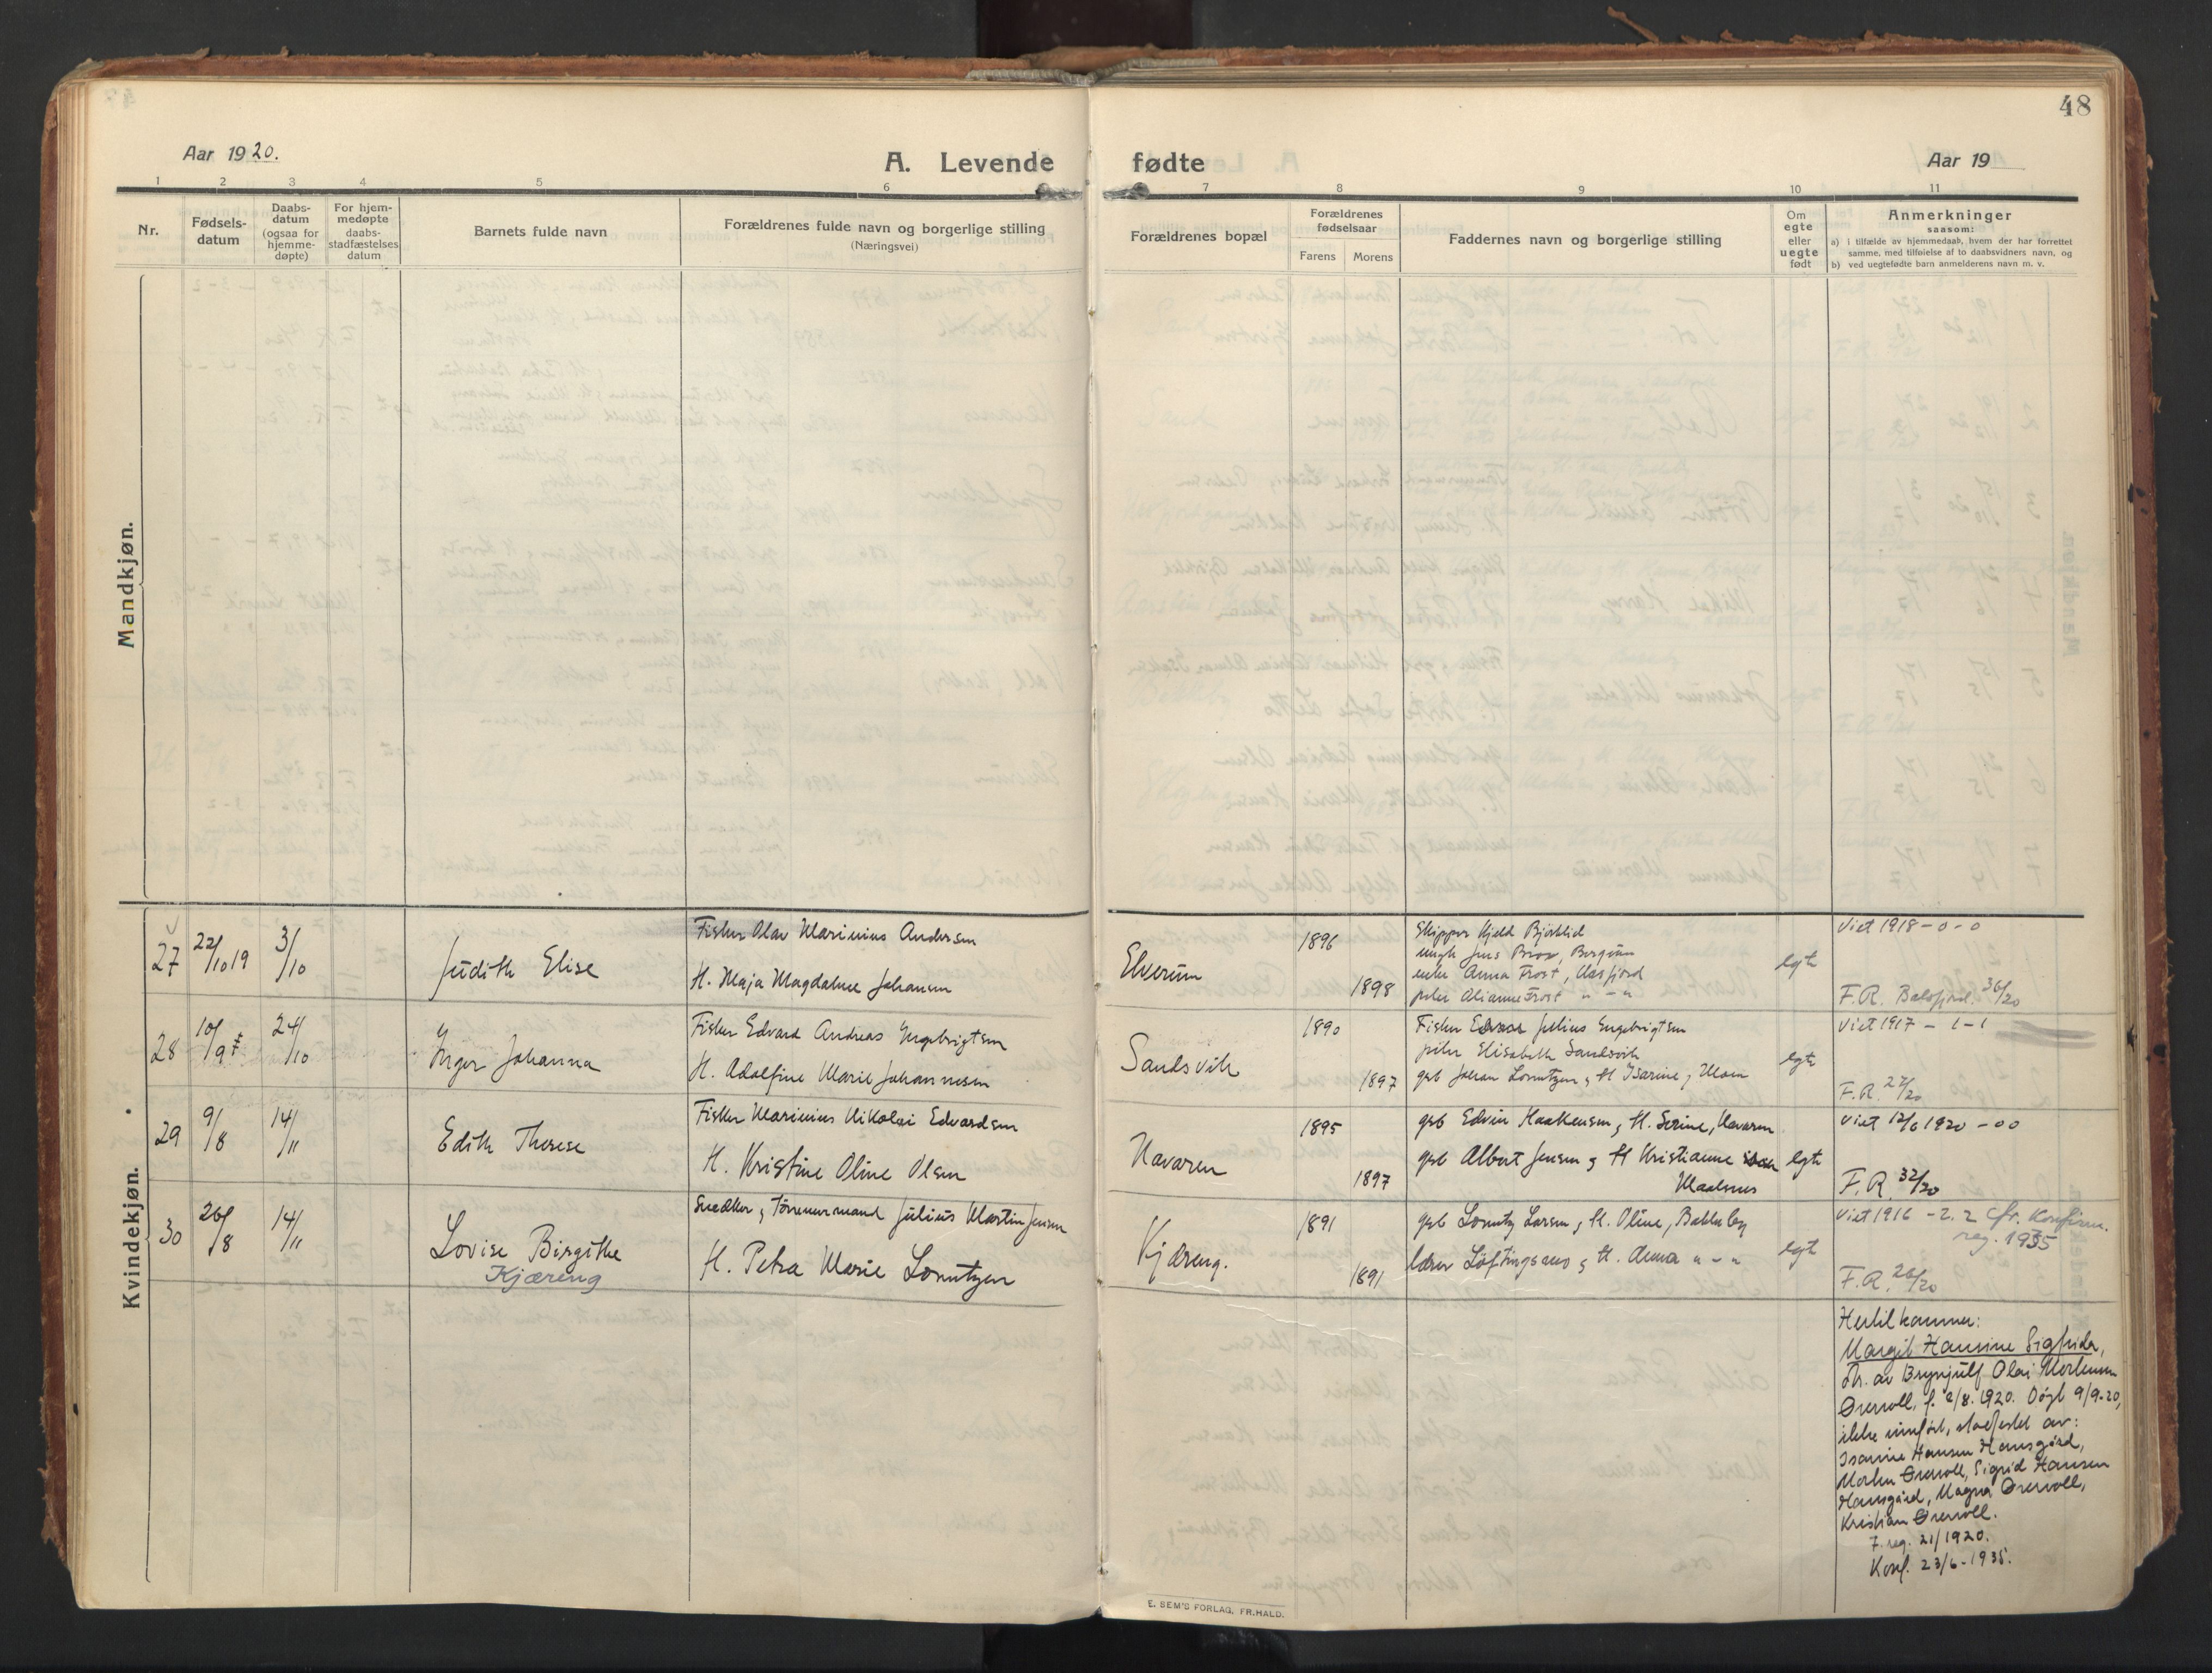 48
Aar 1920.
A. Levende fødte
Aar 19
1 2 3 4 5 6 7 8 9 10 11
Nr.
Fødsels-
datum
Daabs-
datum
(ogsaa for
hjemme-
døpte)
For hjem-
medøpte
daabs-
stadfæstelses
datum
Barnets fulde navn
Forældrenes fulde navn og borgerlige stilling
(Næringsvei)
Forældrenes bopæl
Forældrenes
fødselsaar
Farens Morens
Faddernes navn og borgerlige stilling
Om
egte
eller
uegte
født
Anmerkninger
saasom:
a) i tilfælde av hjemmedaab, hvem der har forrettet
samme, med tilføielse af to daabsvidners navn, og
b) ved uegtefødte barn anmelderens navn m. v.
Mandkjøn.
Kvindekjøn.
27
22/10 19
3/10
Judith Elise
Fisker Olav Marinius Andersen
H. Maja Magdalene Johansen
Elverum
1896
1898
Skipper Kjeld Bjørklid
ungk Jens Brox, Bergum
enke Anna Frost, Aasfjord
pike Alianne Frost " - "
egte
Viet 1918 - 0 - 0
F.R. Balsfjord. 36/20
28
10/9
24/10
Inger Johanna
Fisker Edvard Andreas Engebrigtsen
H. Adolfine Marie Johannesen
Sandsvik
1890
1897
Fisker Edvar Julius Engebrigtsen
pike Elisabeth Sandsvik
gsb Johan Lorentzen, H Isarine, Moen
egte
Viet 1917 - 1 - 1
F.R. 27/20
29
9/8
14/11
Edith Therese
Fisker Marinius Nikolai Edvardsen
H. Kristine Oline Olsen
Navaren
1895
1897
gsb Edvin Haakensen, H. Serine, Navaren
gsb Albert Jensen, H Kristianne
Maalsnes
egte
Viet 12/6 1920 - 00
F.R. 32/20
30
26/8
14/11
Lovise Birgithe
Kjæreng
Snedker, Tømmermand Julius Martin Jensen
H. Petra Marie Lorentzen
Kjæreng.
1891
1891
gsb Lorentz Larsen, H. Oline, Bakkeby
lærer Løftingsmo, H. Anna " - "
egte
Viet 1916 - 2. 2 Cfr. Konfirm.
reg. 1935
F.R. 26/20
Hertil kommer:
Margit Hansine Sigfrida,
dtr. av Brynjulf Olai Mortensen
Ørervoll, f. 2/8. 1920. Døpt 9/9-20,
ikke innført, stadfestet av:
Isarine Hansen Hansgård,
Morten Ørervoll, Sigrid Hansen
Hansgård, Magna Ørervoll,
Kristian Ørervoll.
F. reg. 21/1920.
Konf. 23/6-1935.
E. SEM'S FORLAG, FR.HALD.